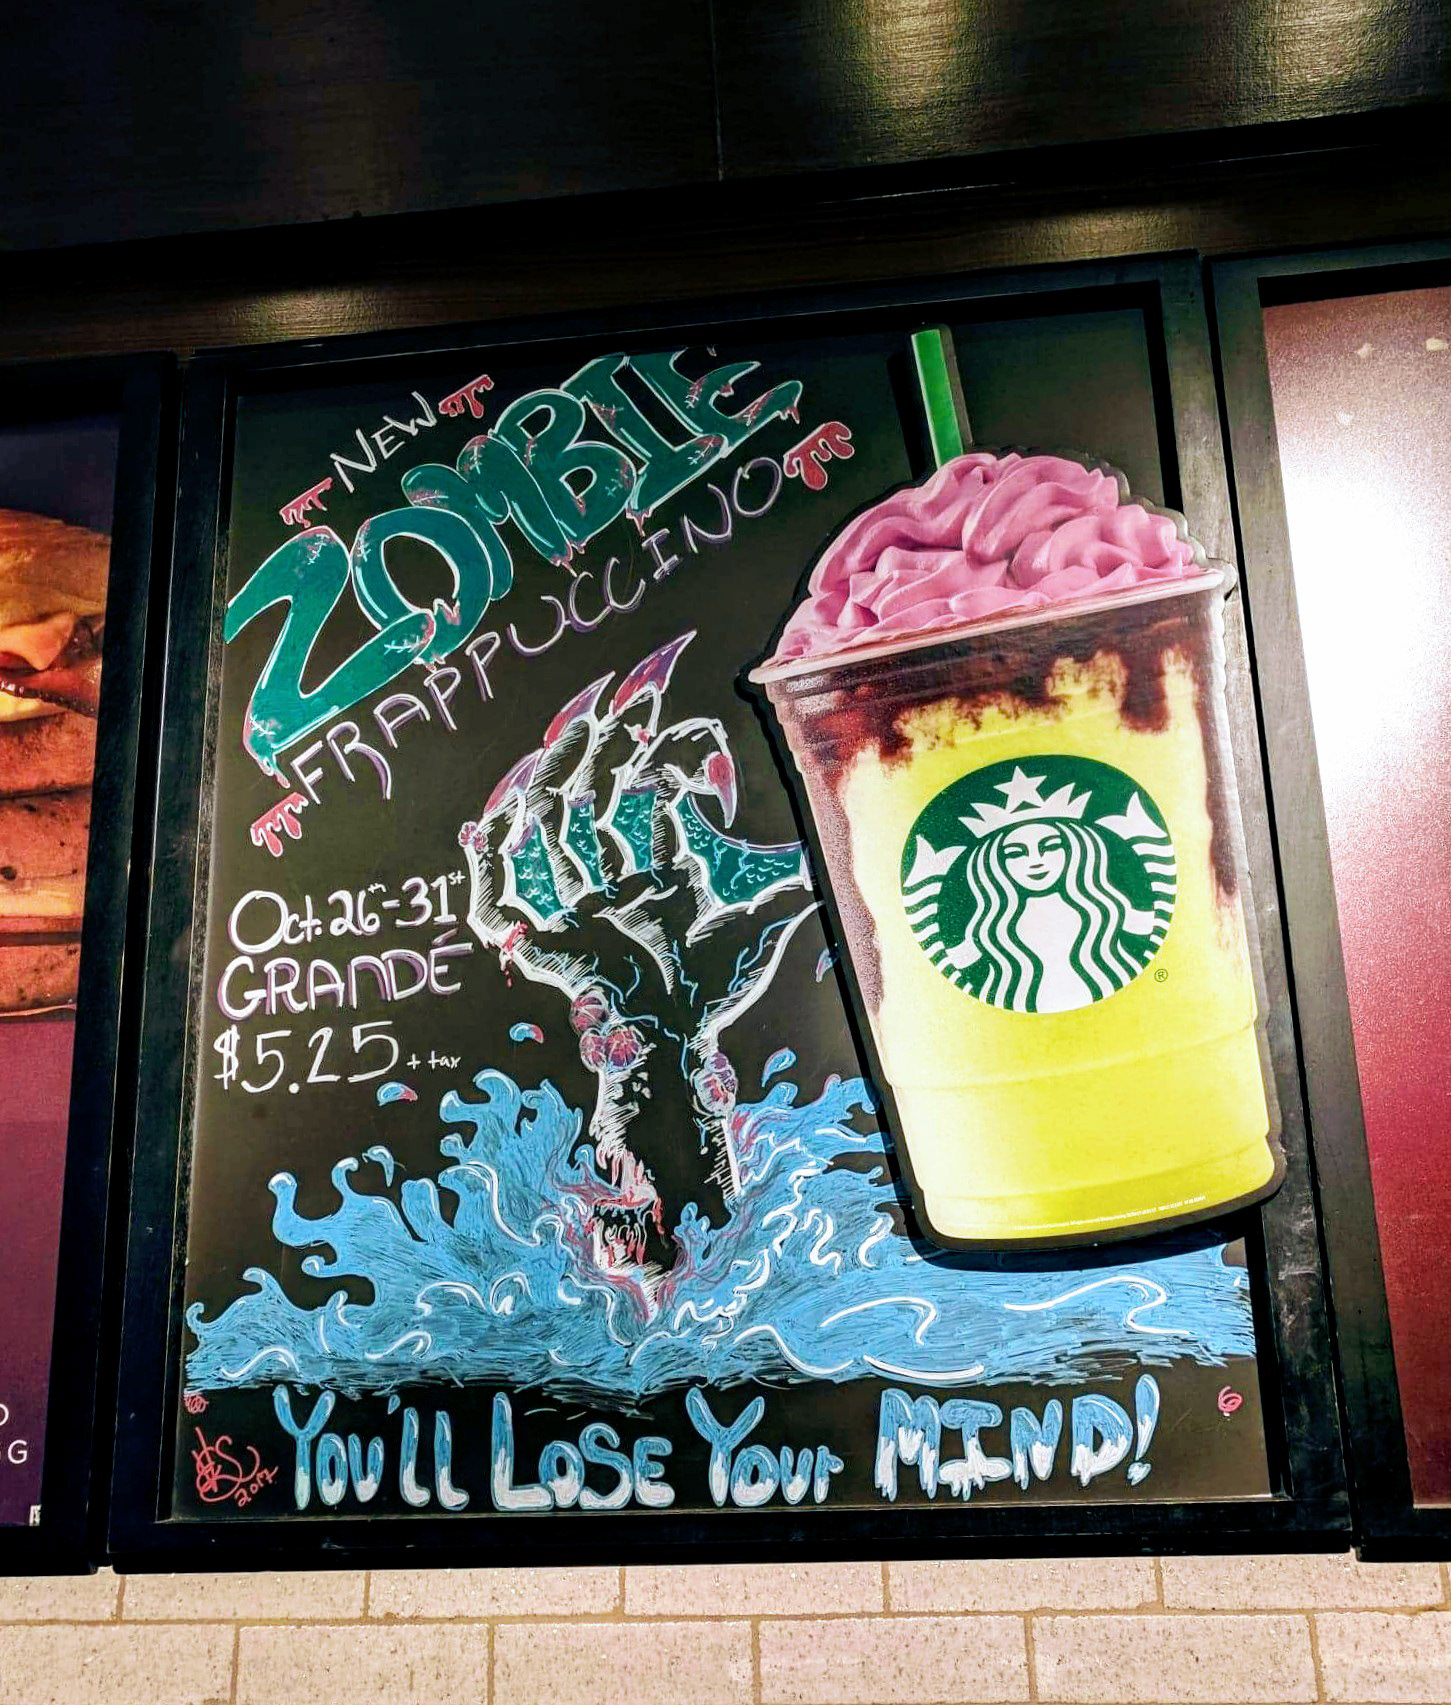 NEW
ZOMBIE
FRAPPUCCINO
Oct. 26th-31st
GRANDÉ
$5.25 + tax
YOU'll LOSE YOUr MIND!
2017
®
G